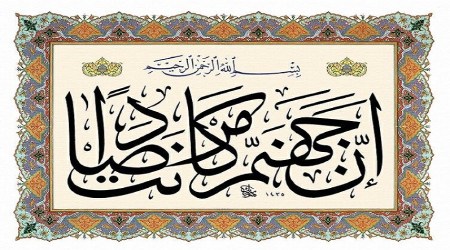 بِسْمِ اللَّهِ الرَّحْمَنِ الرَّحِيمِ
إِنَّ جَهَنَّمَ كَانَتْ مِرْصَادًا
١٤٣٥